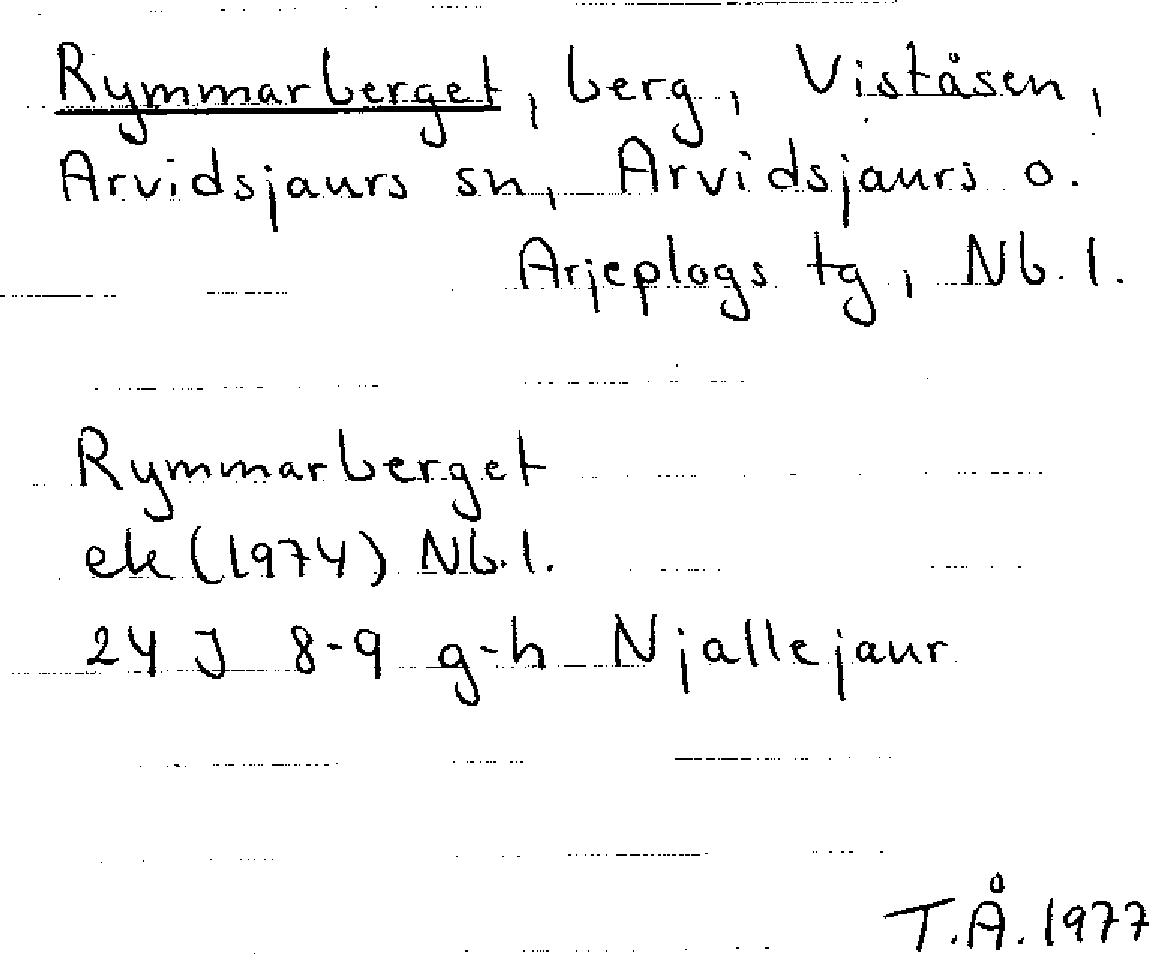 Rymmarberget, berg, Viståsen,
Arvidsjaurs sn, Arvidsjaurs o.
Arjeplogs tg, Nb. l.
Rymmarberget
ek (1974) Nb. l.
24 J 8-9 g-h Njallejaur
T.Å. 1977